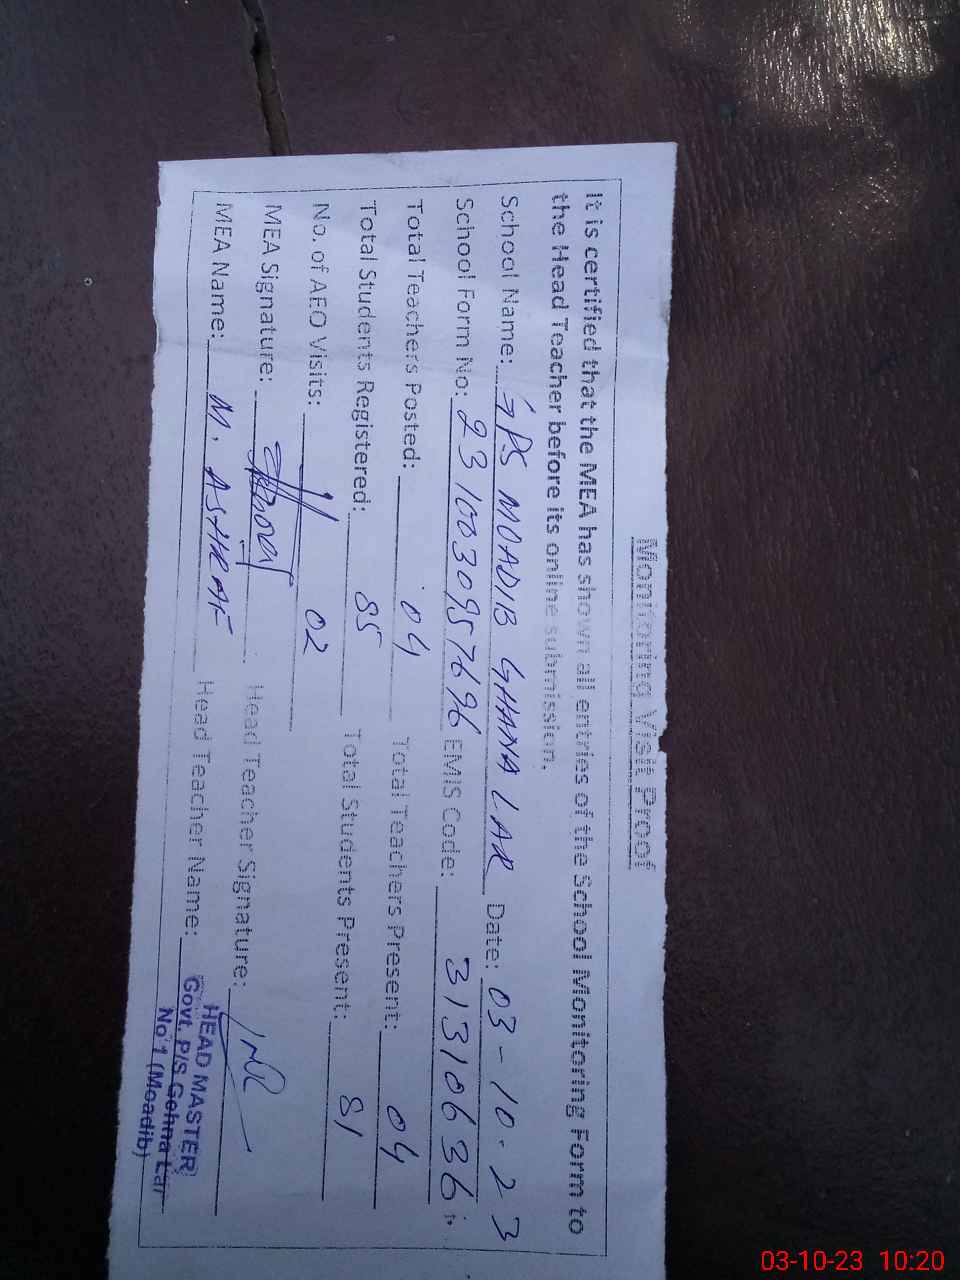 Monitoring Visit Proof
It is certified that the MEA has shown all entries of the School Monitoring Form to
the Head Teacher before its online submission.
School Name: GPS MOADIB GHANA LAR Date: 03-10-23
School Form No: 2310030957696 EMIS Code: 31310636
Total Teachers Posted: 04 Total Teachers Present: 04
Total Students Registered: 85 Total Students Present: 81
No. of AEO Visits: 02
MEA Signature: Head Teacher Signature:
MEA Name: M. ASHRAF Head Teacher Name:
HEAD MASTER
Govt. P/S Gehna Lar
No 1 (Moadib)
03-10-23 10:20